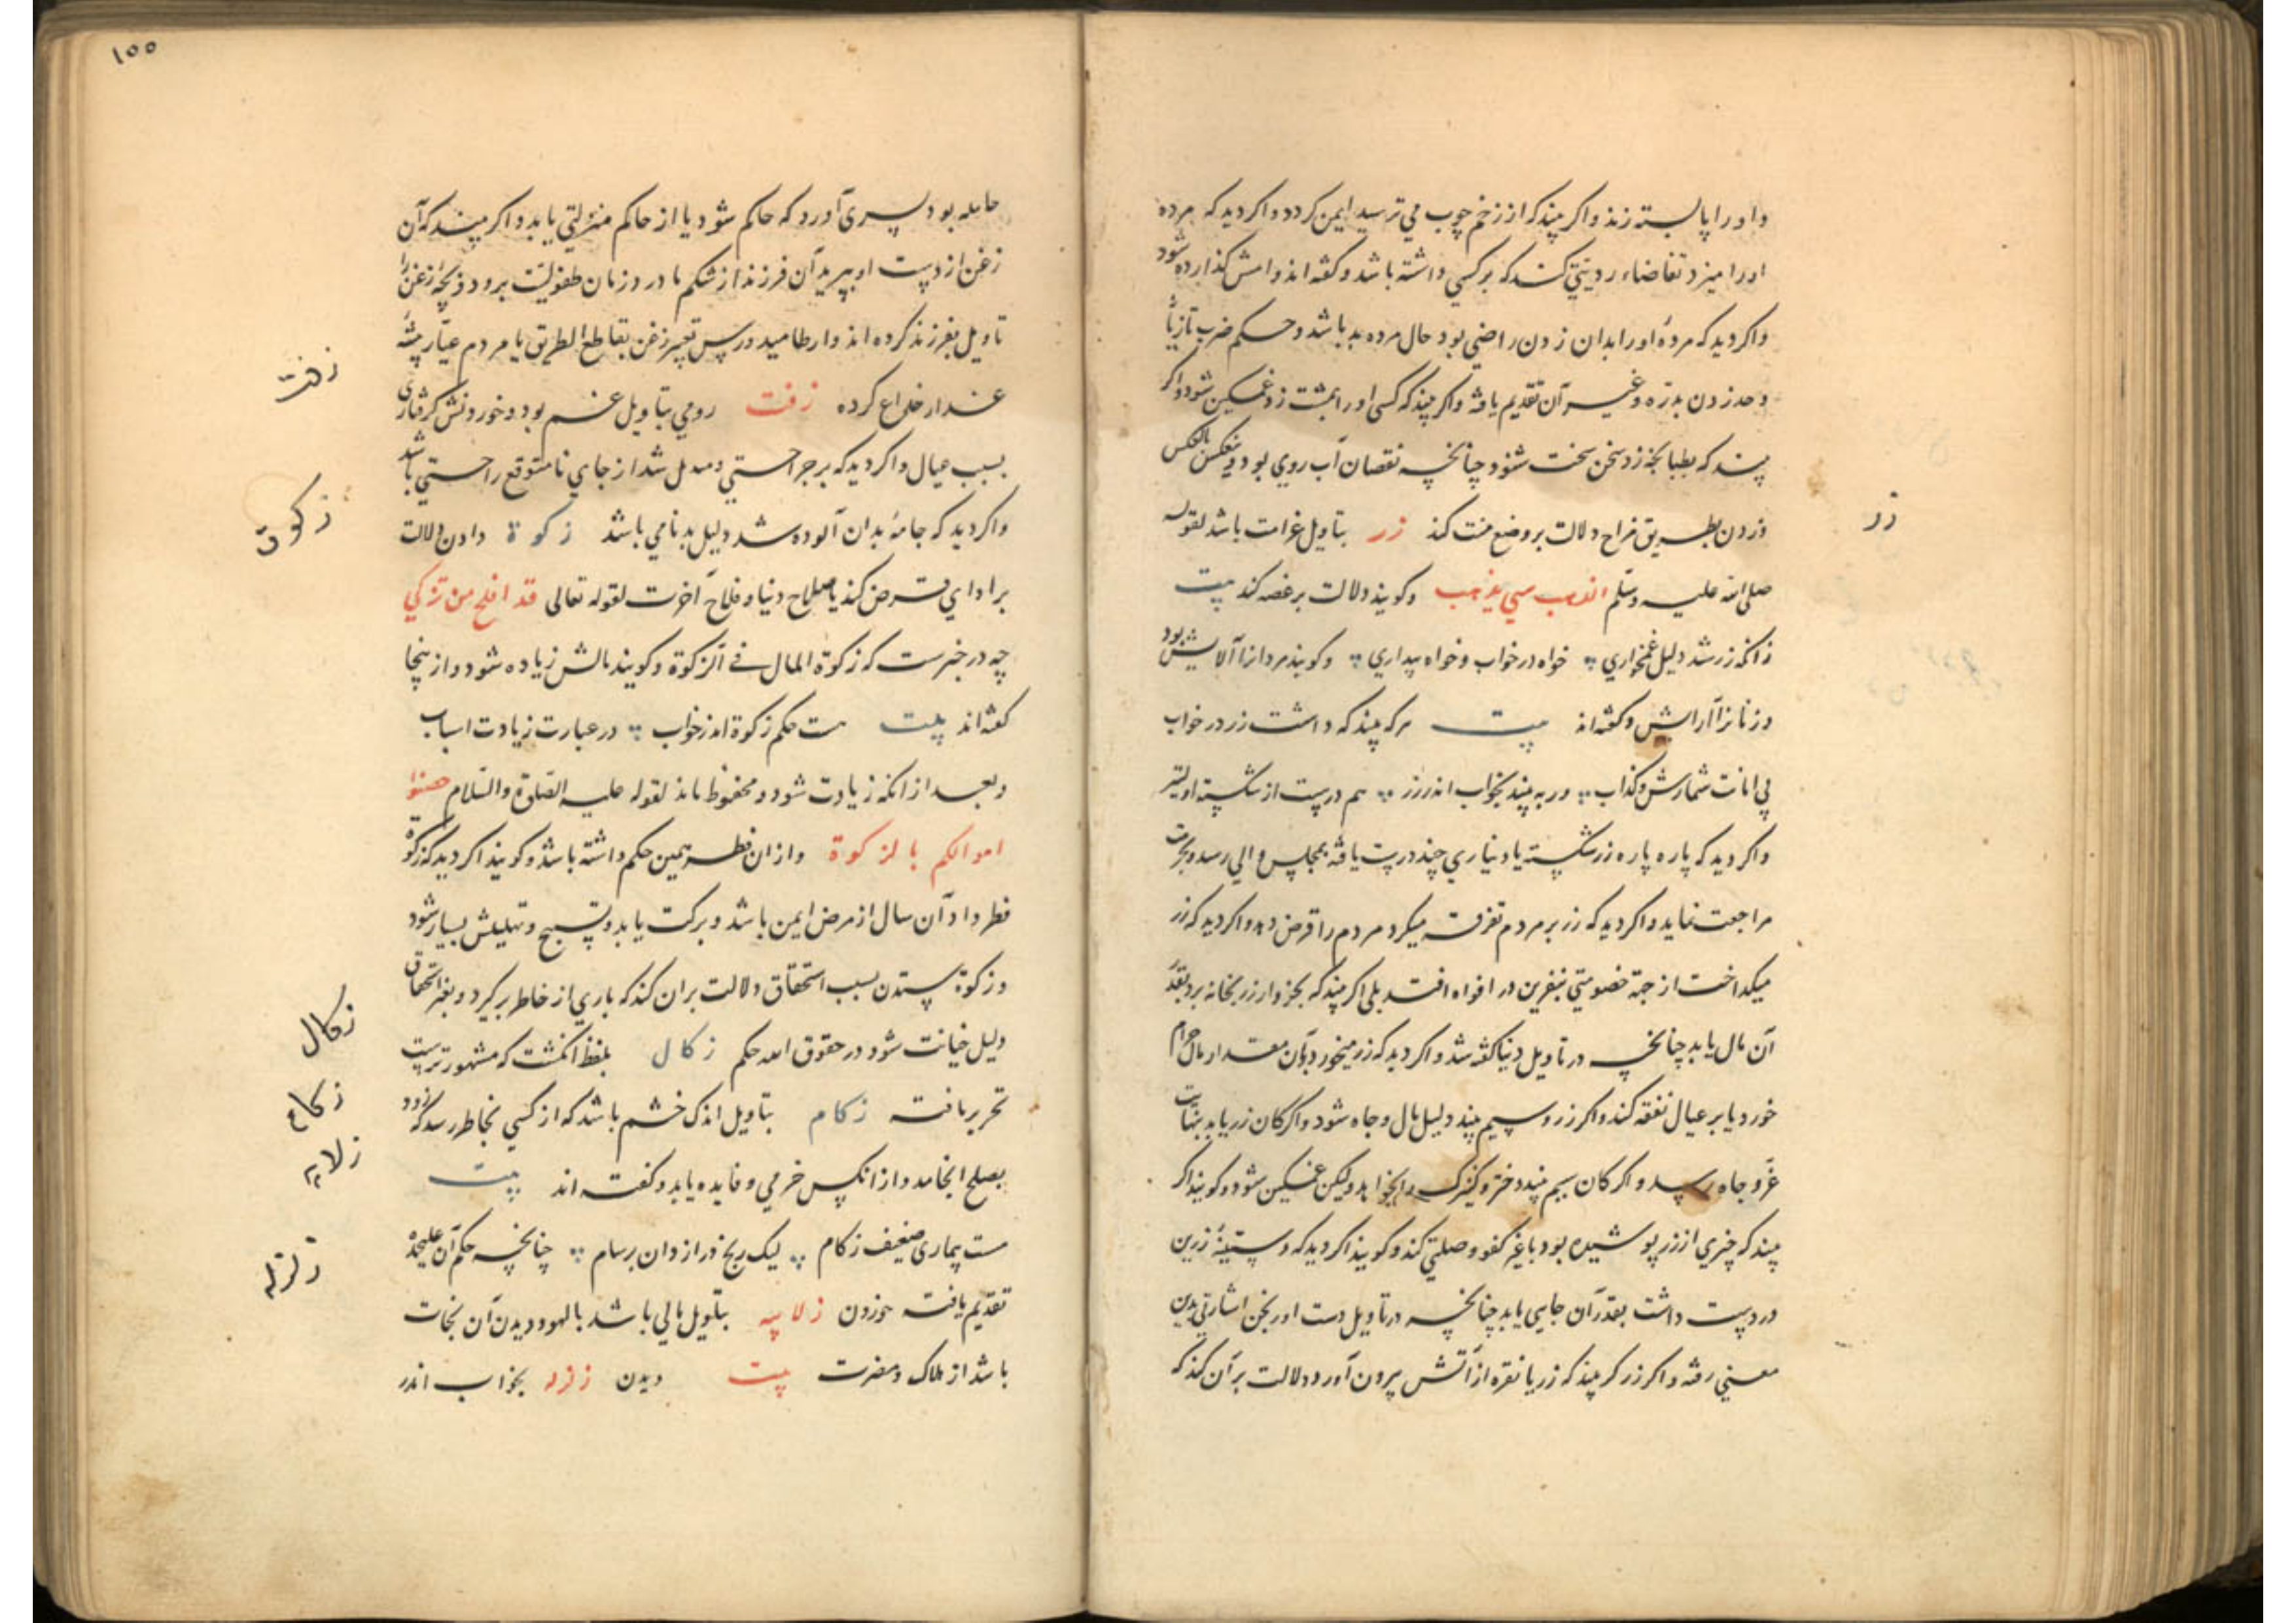 و او را پا بسته زند و اگر بیند که از زخم چوب می ترسید ایمن گردد و اگر دید که مرده
او را میزد تقاضاء رد کند که بر کسی داشته باشد و گفته‌اند وامش گذارده شود
و اگر دید که مردهٔ او را بدان زدن راضی بود حال مرده بد باشد و حکم ضرب تازیانه
و حد زدن بدرّه و غیر آن تقدیم یافته و اگر بیند که کسی او را بمشت زد غمگین شود و اگر
بیند که بطپانچه زد سخن سخت شنود چنانچه نقصان آب روی بود و ینعکس بالعکس
و زدن بطریق مزاح دلالت بر وضع منت کند زر بتاویل غرامت باشد لقوله
صلی الله علیه وسلّم الذهب یذهب و گویند دلالت بر غصه کند بیت
زانکه زر شد دلیل غمخواری خواه در خواب و خواه بیداری و گویند مردانرا آلایش بود
و زنانرا آرایش و گفته‌اند بیت هر که بیند که داشت زر در خواب
بی امانت شمارش و کذاب ور ببیند بخواب اندر زر هم درست از شکسته اولیتر
و اگر دید که پاره پاره زر شکسته یا دیناری چند درست یافته بمجلس والی رسد و بحرمت
مراجعت نماید و اگر دید که زر بر مردم تفرقه میکرد مردم را قرض دهد و اگر دید که زر
میگداخت از جهة خصومتی بنفرین در افواه افتد بلی اگر بیند که بخروار زر بخانه برد بقدر
آن مال یابد چنانچه در تاویل دنیا گفته شد و اگر دید که زر میخورد بآن مقدار مال حرام
خورد یا بر عیال نفقه کند و اگر زر و سیم بیند دلیل مال و جاه شود و اگر کان زر یابد بنهایت
عزّ و جاه رسد و اگر کان سیم بیند دختر و کنیزک را بخواهد ولیکن غمگین شود و گویند اگر
بیند که چیزی از زر پوشیده بود با غیر کفو وصلتی کند و گویند اگر دید که دستینهٔ زرین
در دست داشت بقدر آن جایی یابد چنانچه در تاویل دست اورنجن اشارتی بدین
معنی رفته و اگر زرگر بیند که زر یا نقره از آتش بیرون آورد دلالت بر آن کند که
زر
١٥٥
حامله بود پسری آورد که حاکم شود یا از حاکم منزلتی یابد و اگر بیند که آن
زغن از دست او بپرید آن فرزند از شکم مادر در زمان طفولیّت برود و بچهٔ زغن را
تاویل بفرزند کرده‌اند و ارطامیدورس تعبیر زغن بقاطع الطریق یا مردم عیّار پیشه
غدار خداع کرده زفت رومی بتاویل غم بود و خوردنش گرفتاری
بسبب عیال و اگر دید که بر جراحتی و مندمل شد از جای نامتوقع راحتی باشد
و اگر دید که جامه بدان آلوده شد دلیل بدنامی باشد زکوة دادن دلالت
بر ادای قرض کند یا صلاح دنیا و فلاح آخرت لقوله تعالی قد افلح من تزکی
چه در خبرست که زکوة المال فی الزکوة و گویند مالش زیاده شود و از ینجا
گفته‌اند بیت هست حکم زکوة اندر خواب در عبارت زیادت اسباب
و بعد از آنکه زیادت شود و محفوظ ماند لقوله علیه الصّلوة والسّلام حصنوا
اموالکم بالزکوة و از ان فطر همین حکم داشته باشد و گویند اگر دید که زکوة
فطر داد آن سال از مرض ایمن باشد و برکت یابد و تسبیح و تهلیلش بسیار شود
و زکوة ستدن بسبب استحقاق دلالت بران کند که باری از خاطر برگیرد و بغیر استحقاق
دلیل خیانت شود در حقوق الله حکم زکال بلفظ انگشت که مشهورتریست
تحریر یافت زکام بتاویل اندک خشم باشد که از کسی بخاطر رسد که زود
بصلح انجامد و از آنکس خرمی و فایده یابد و گفته‌اند بیت
هست بیماری ضعیف زکام لیک رنج دراز دان برسام چنانچه حکم آن علیحده
تقدیم یافت زلابیه بتاویل مالی باشد بالهو و دیدن آن نجات
باشد از هلاک و مضرت بیت دیدن زلزله بخواب اندر
زفت
زکوة
زکال
زکام
زلابیه
زلزله